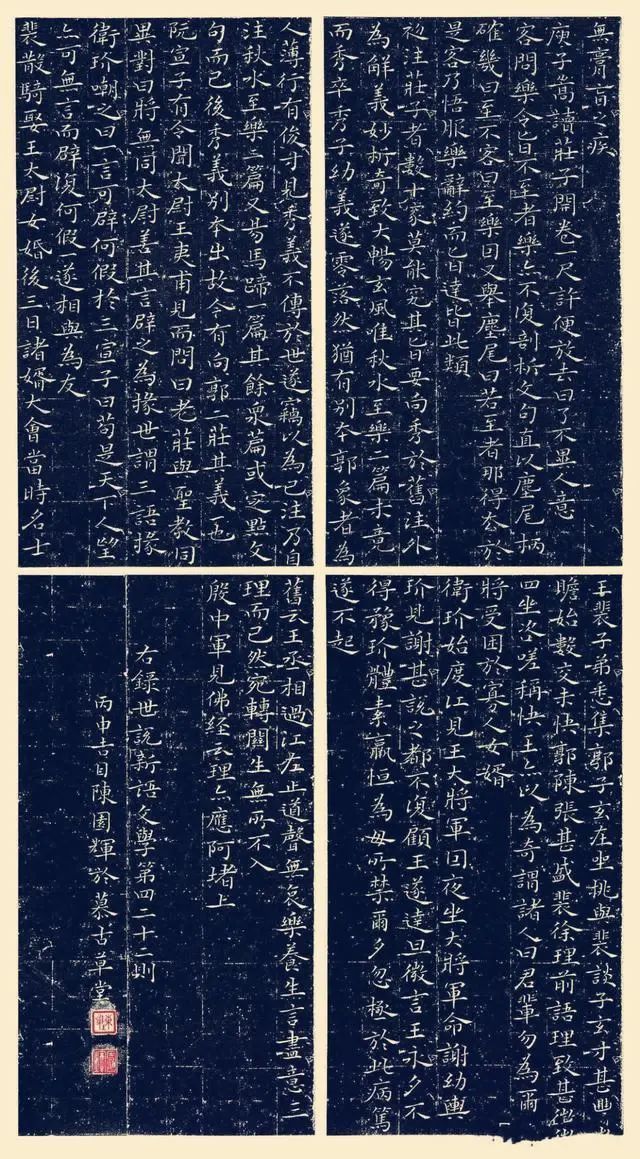 無膏肓之疾
庾子嵩讀莊子開卷一尺許便放去曰了不異人意
客問樂令旨不至者樂亦不復剖析文句直以塵尾柄
確幾曰至不客曰至樂因又舉塵尾曰若至者那得去於
是客乃悟服樂辭約而已旨達皆此類
初注莊子者數十家莫能究其旨要向秀於舊注外
為解義妙析奇致大暢玄風唯秋水至樂二篇未竟
而秀卒秀子幼義遂零落然猶有別本郭象者為
人薄行有俊才見秀義不傳於世遂竊以為己注乃自
注秋水至樂二篇又易馬蹄一篇其餘眾篇或定點文
句而已後秀義別本出故今有向郭二莊其義一也
阮宣子有令聞太尉王夷甫見而問曰老莊與聖教同
異對曰將無同太尉善其言辟之為掾世謂三語掾
衛玠嘲之曰一言可辟何假於三宣子曰苟是天下人望
亦可無言而辟復何假一遂相與為友
裴散騎娶王太尉女婚後三日諸婿大會當時名士
王裴子弟悉集郭子玄在坐挑與裴談子玄才甚豐
贍始數交未快郭陳張甚盛裴徐理前語理致甚微
四坐咨嗟稱快王亦以為奇謂諸人曰君輩勿為爾
將受困於寡人女婿
衛玠始度江見王大將軍因夜坐大將軍命謝幼輿
玠見謝甚說之都不復顧王遂達旦微言王永夕不
得豫玠體素羸恒為母所禁爾夕忽極於此病篤
遂不起
舊云王丞相過江左止道聲無哀樂養生言盡意三
理而已然宛轉關生無所不入
殷中軍見佛經云理亦應阿堵上
右錄世說新語文學第四二十二則
丙申三月陳國輝於慕古草堂